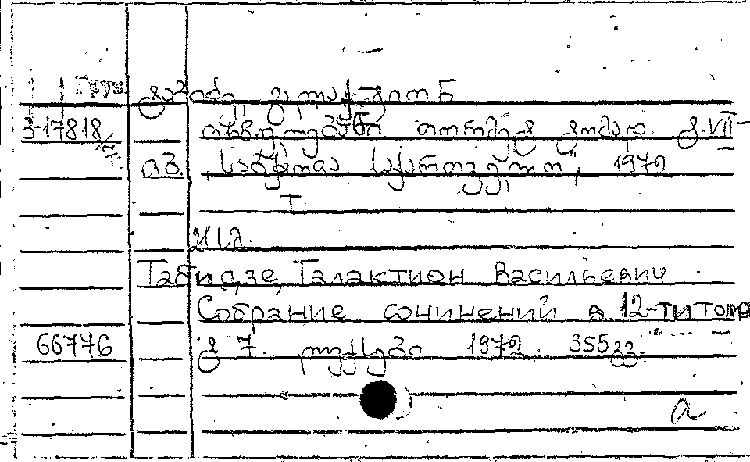 Груз
ტაბიძე, გალაკტიონ
3-17818 თხზულებანი თორმეტ ტომად. ტ. VII-
თბ. „საბჭოთა საქართველო", 1972
Табидзе, Галактион Васильевич
Собрание сочинений в 12-ти томах
66776 ტ 7. ლექსები 1972. 355 გვ.